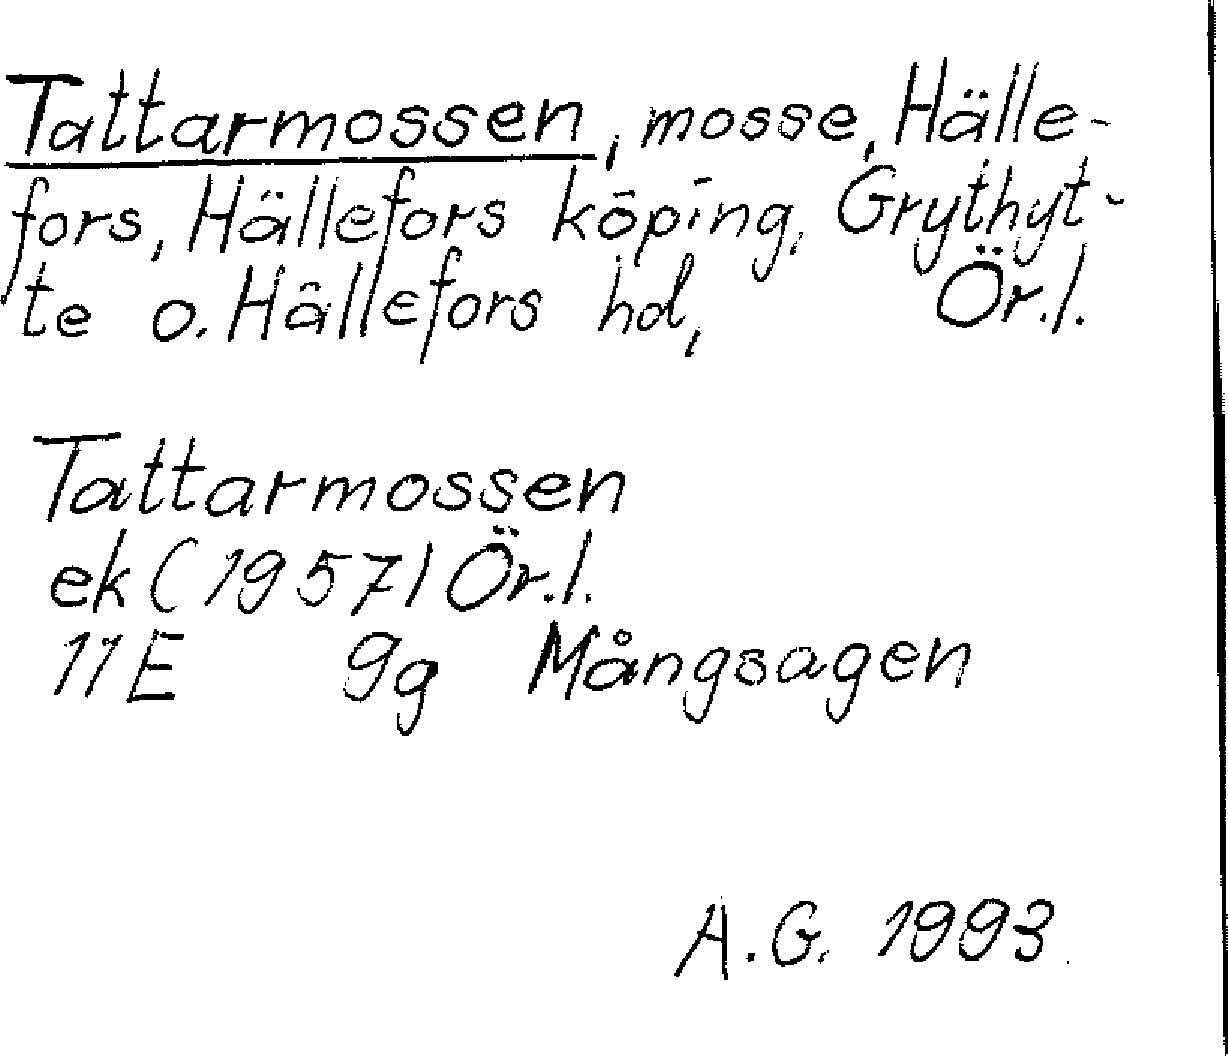 Tattarmossen, mosse, Hälle-
fors, Hällefors köping, Grythyt-
te o. Hällefors hd, Ör.l.
Tattarmossen
ek (1957) Ör.l.
11E 9g Mångsagen
A.G. 1993